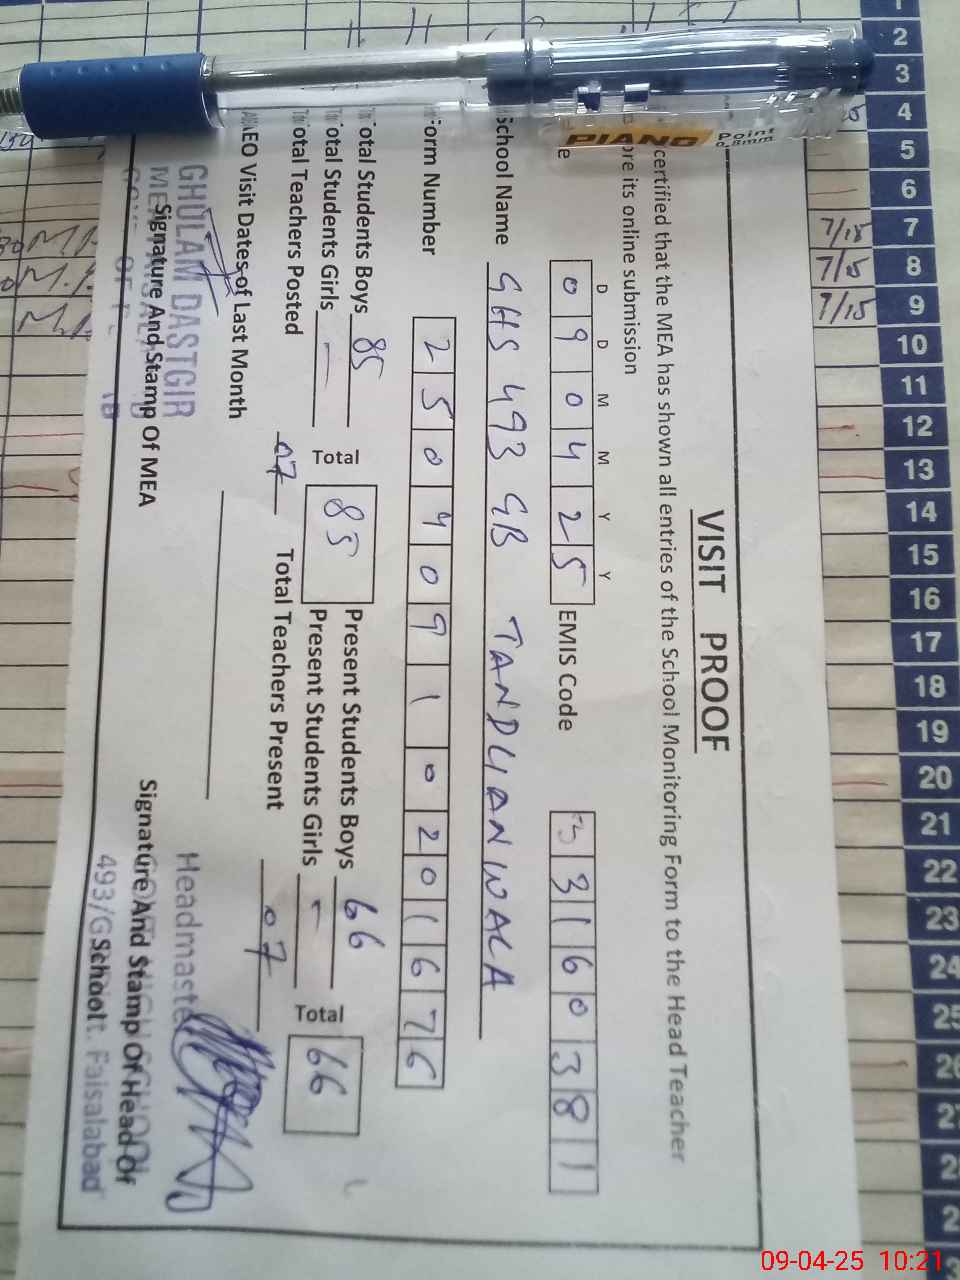 VISIT PROOF
certified that the MEA has shown all entries of the School Monitoring Form to the Head Teacher
its online submission
D D M M Y Y
0 9 0 4 2 5 EMIS Code 3 3 1 6 0 3 8 1
School Name GHS 493 GB TANDLIANWALA
Form Number 2 5 0 4 0 9 1 0 2 0 1 6 7 6
Total Students Boys 85 Present Students Boys 66
Total Students Girls — Total 85 Present Students Girls — Total 66
Total Teachers Posted 07 Total Teachers Present 07
AEO Visit Dates of Last Month
GHULAM DASTGIR
Headmaster
Signature And Stamp Of MEA
Signature And Stamp Of Head Of
School
493/G
Faisalabad
PIANO Point
0.8mm
2
3
4
5
6
7
8
9
10
11
12
13
14
15
16
17
18
19
20
21
22
23
24
25
26
7/15
09-04-25 10:21